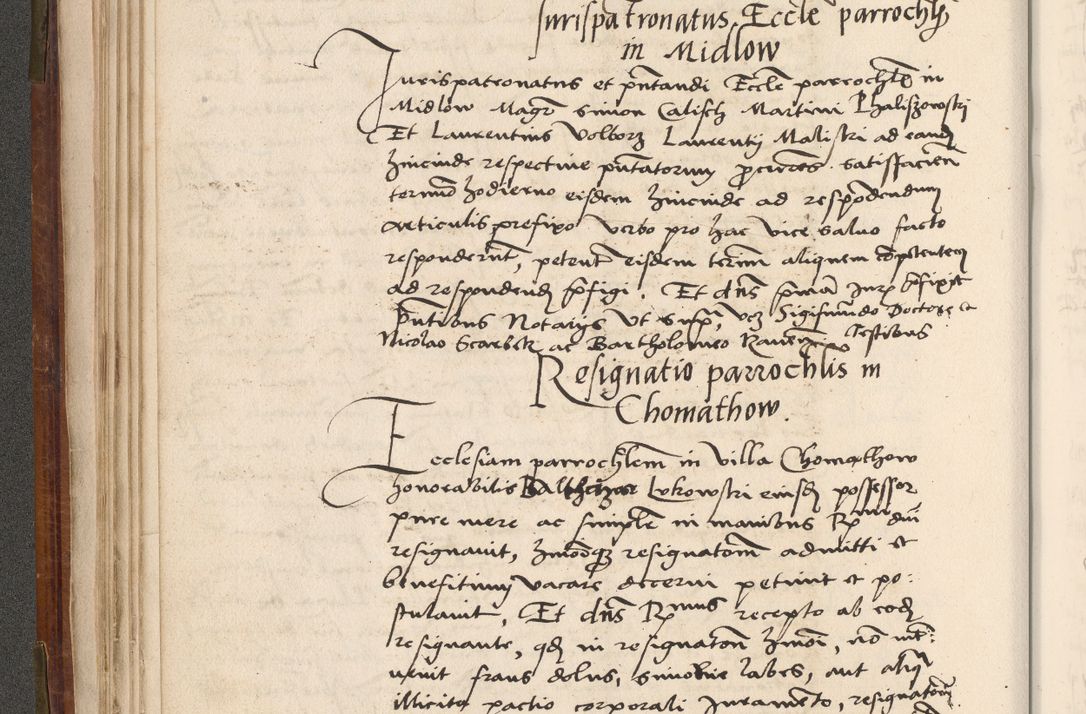 Jurispatronatus Eccle parrochlis
in Midlow
Jurispatronatus et pntandi Eccle parrochlis in
Midlow Magr Simon Calisch Martini Phaliszowski
Et Laurentius Volborz Laurentij Malistri ad eandem
hincinde respective pntatorum procures satisfacien
termino hodierno eisdem hincinde ad respondendum
articulis prefixo verbo pro hac vice salvo facto
responderunt, petentes eisdem terminum aliquem competentem
ad respondendum prefigi. Et dns
pntibus Notarijs ut supra, Sigismundo Doctore et
Nicolao Scarbek ac Bartholomeo Testibus
Resignatio parrochlis in
Chomathow.
Ecclesiam parrochlem in villa Chomathow
honorabilis Balthazar Lukowski eiusdem possessor
pure mere ac simplr in manibus Rmi dni
resignavit, hmoiqz resignationem admitti et
benefitium vacare decerni petiit et po:
stulavit, Et dns Rmus recepto ab eodem
resignante, qd in resignation hmoi, no inter:
venit fraus dolus, simonie labes, aut aliqua
illicita pactio corporali Juramento, resignationem